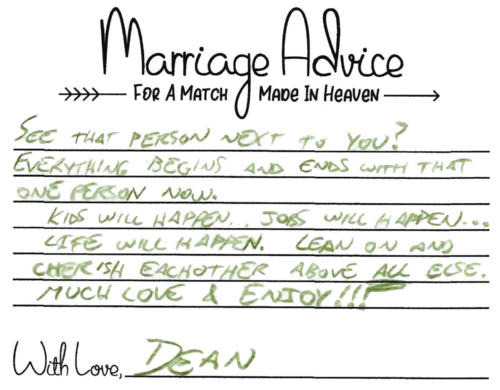 Marriage Advice
FOR A MATCH MADE IN HEAVEN
SEE THAT PERSON NEXT TO YOU?
EVERYTHING BEGINS AND ENDS WITH THAT
ONE PERSON NOW.
KIDS WILL HAPPEN... JOBS WILL HAPPEN...
LIFE WILL HAPPEN. LEAN ON AND
CHERISH EACHOTHER ABOVE ALL ELSE.
MUCH LOVE & ENJOY!!!
With Love, DEAN